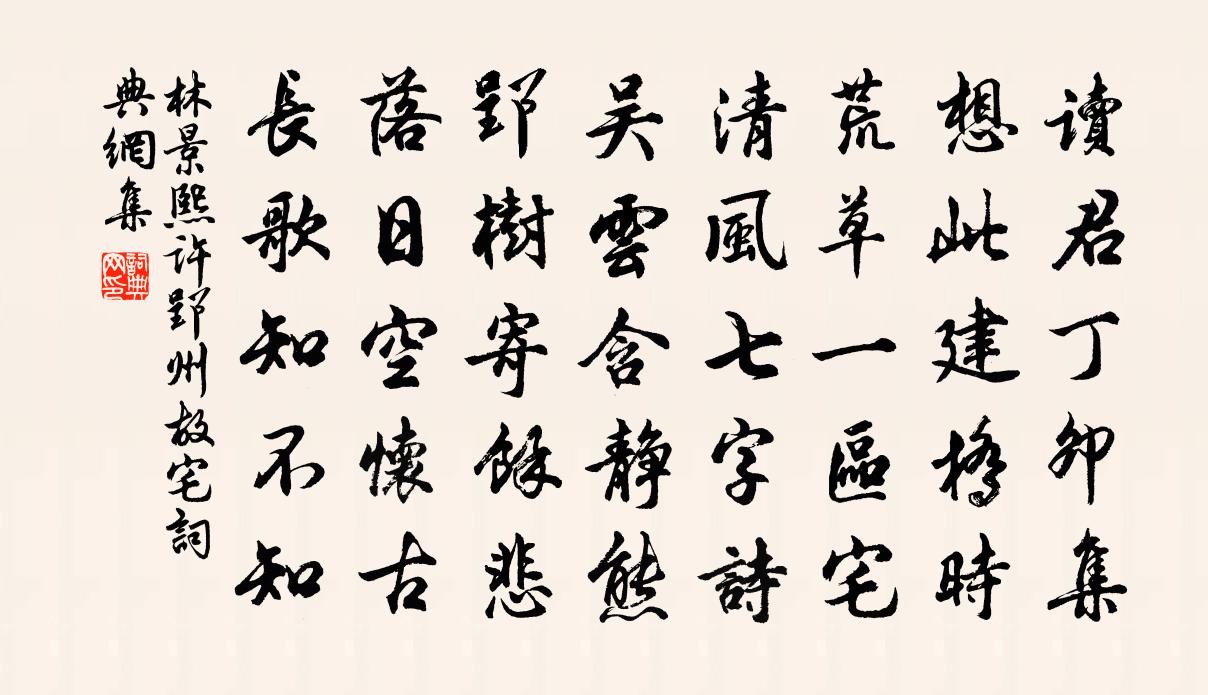 讀君丁卯集
想此建橋時
荒草一區宅
清風七字詩
吴雲含静態
郢樹寄餘悲
落日空懷古
長歌知不知
林景熙許郢州故宅詞
典網集
詞典网印